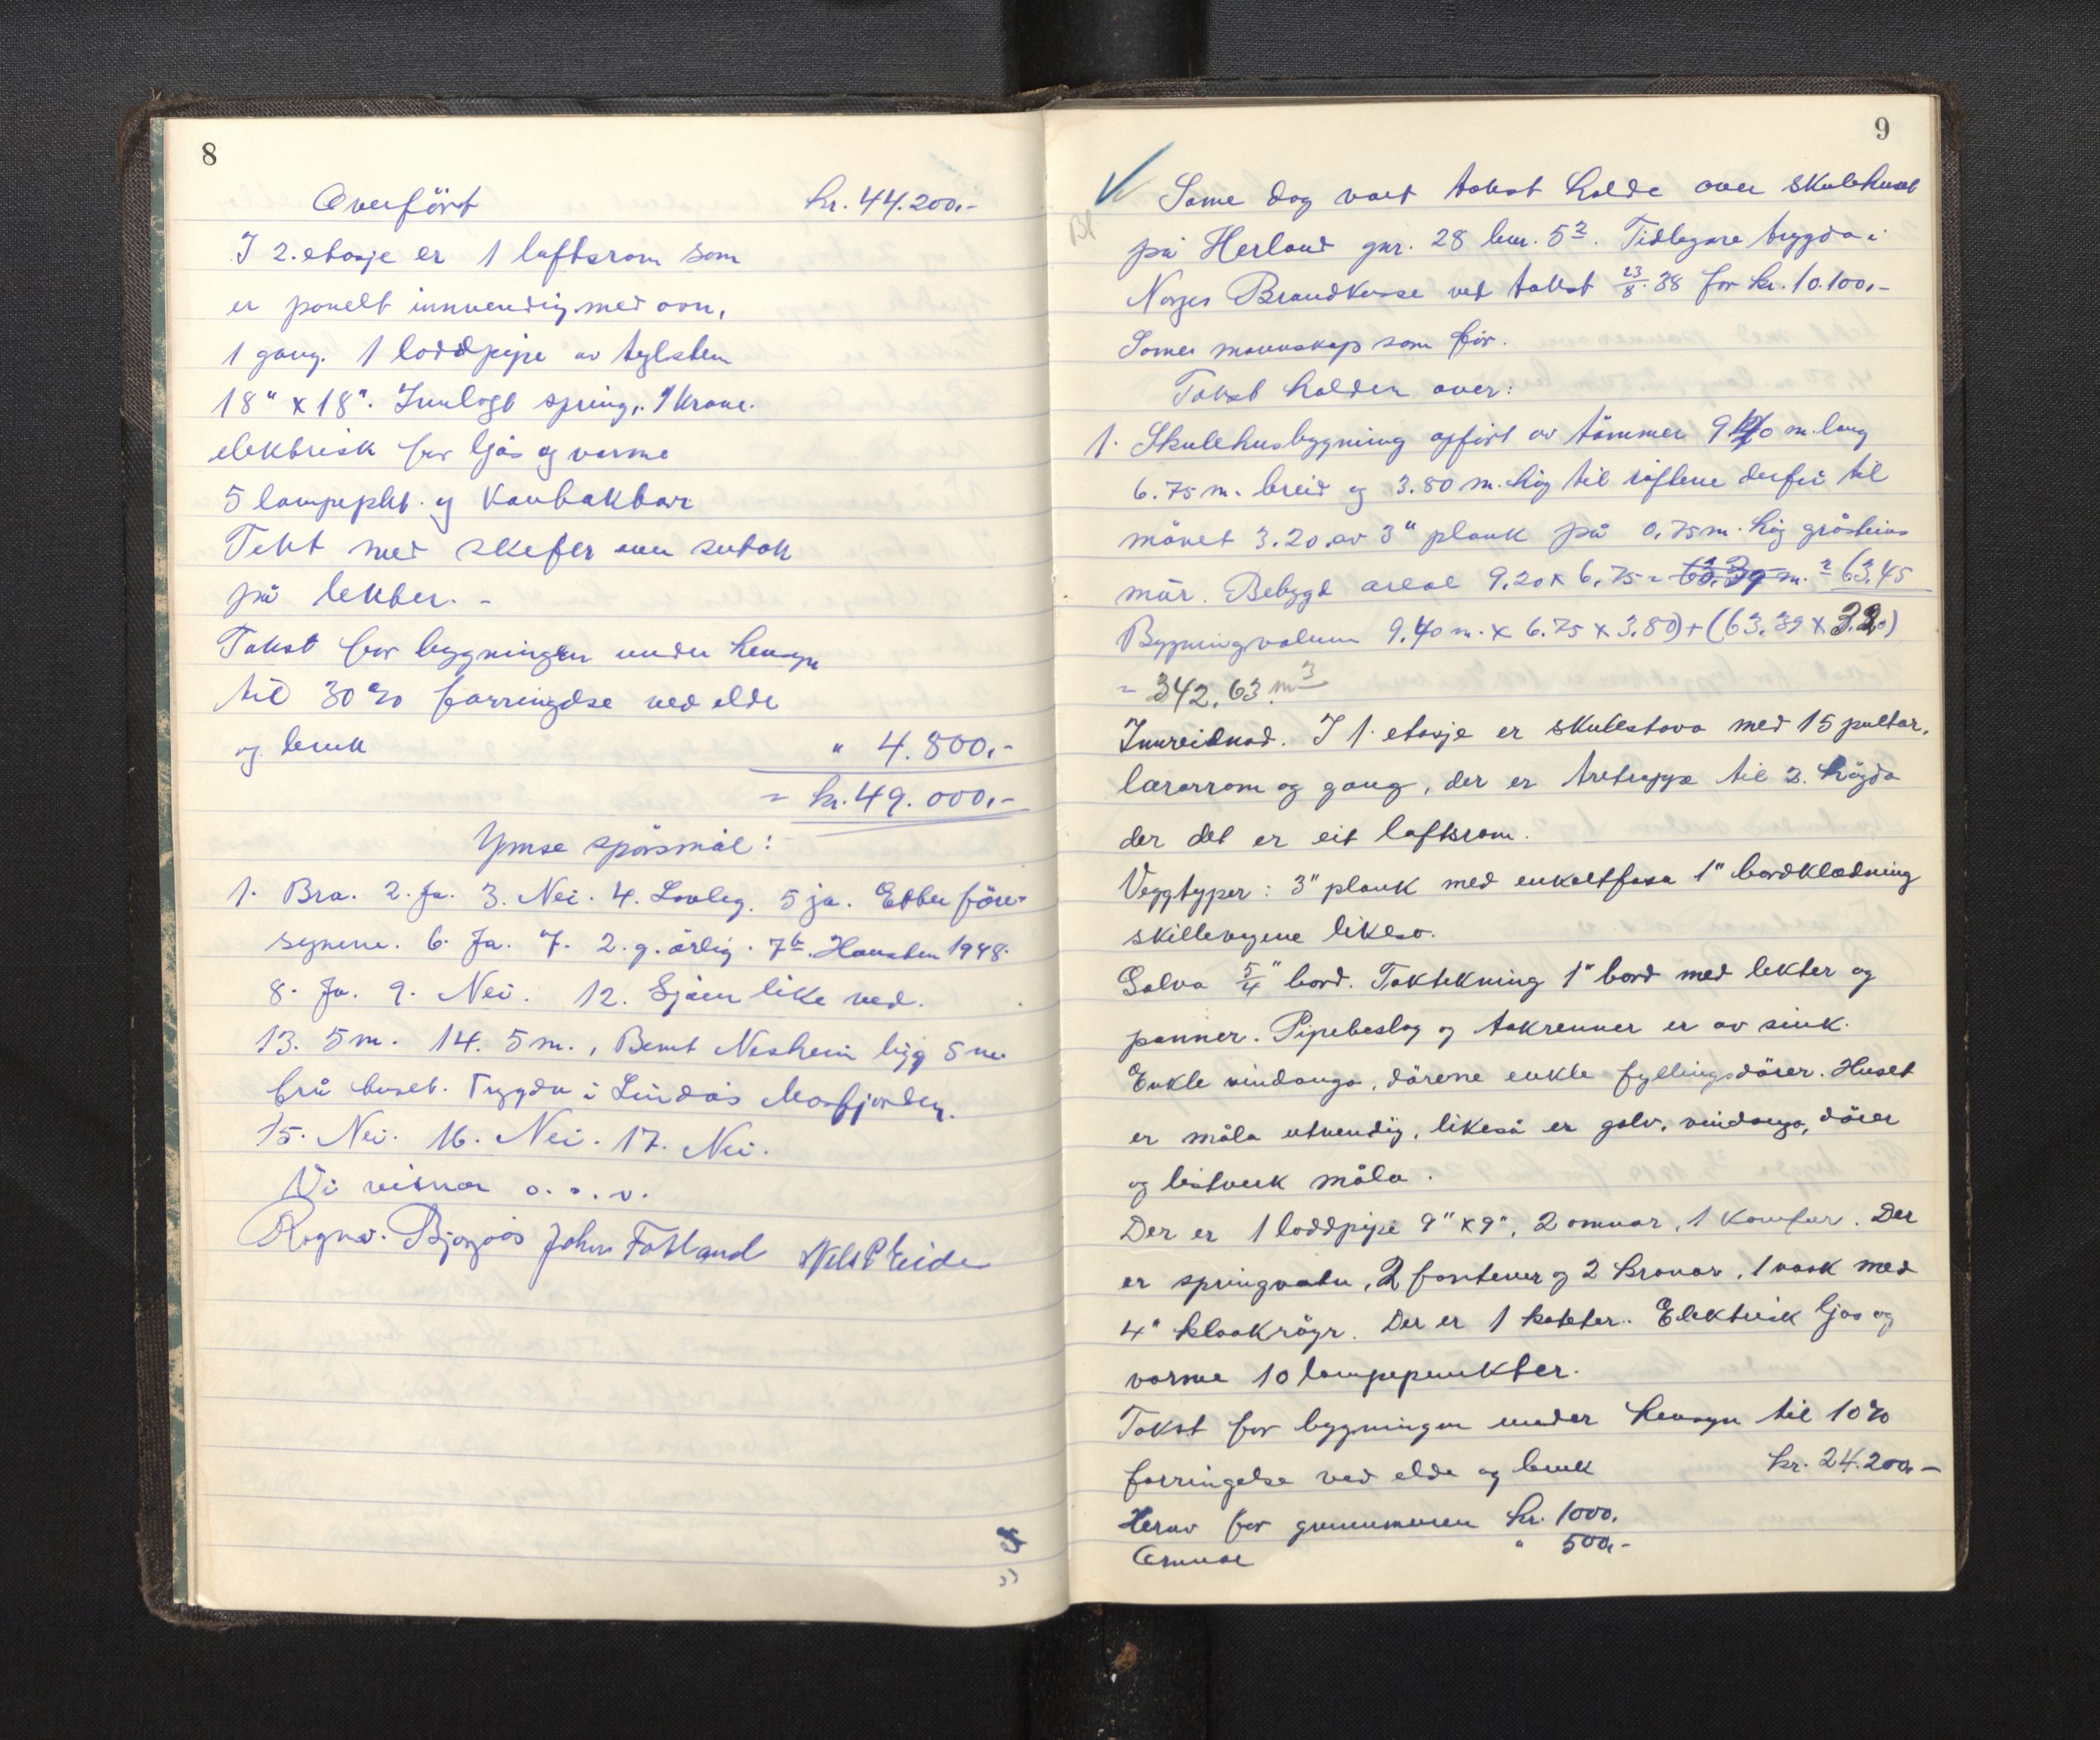 8
Overført kr. 44.200.-
I 2. etasje er 1 loftsrom som
er panelt innvendig med ovn,
1 gang. 1 loddpipe av teglsten
18" x 18". Innlagt spring, 1 krane.
elektrisk for ljos og varme
5 lampepkt. og kontaktar
Tekt med skifer over sutak
på lekter. -
Takst for bygningen under hensyn
til 30% forringelse ved elde
og bruk " 4.800.-
= kr. 49.000.-
Ymse spörsmål:
1. Bra. 2. Ja. 3. Nei. 4. Lovleg. 5 ja. Etter före-
segnene. 6. Ja. 7. 2. g. årlig. 7b. Hausten 1948.
8. Ja. 9. Nei. 12. Sjøen like ved.
13. 5 m. 14. 5 m., Bernt Neshein bygg 5 m.
frå huset. Trygda i Lindås Masfjorden.
15. Nei. 16. Nei. 17. Nei.
Vi visnar o.s.v.
Ragnv. Bjørgaas John Fotland Nils P Eide
9
Same dag vart takst halde over skulehuset
på Herland gnr. 28 bnr. 5 2. Tidlegare trygda i
Norges Brandkasse ved takst 23/8.38 for kr. 10.100.-
Same mannskap som för.
Takst halden over:
1. Skulehusbygning opfört av tömmer 9.40 m. lang
6.75 m. breid og 3.80 m. høg til röftene derfrå til
mönet 3.20 av 3" plank på 0,75 m. høg gråsteins
mur. Bebygd areal 9.20 x 6.75 = 63.39 m.² = 63,45
Bygningsvolum 9.40 m. x 6.75 x 3.80) + (63.39 x 3.20)
= 342,63 m³
Innreidnad. I 1. etasje er skulestova med 15 pultar,
lærarrom og gang, der er tretrapp til 2. högda
der det er eit loftsrom.
Veggtyper: 3" plank med enkeltfasa 1" bordklædning
skillevegene likeso.
Golva 5/4" bord. Taktekning 1" bord med lekter og
panner. Pipebeslag og takrenner er av sink.
Enkle vindauga, dörene enkle fyllingsdörer. Huset
er måla utvendig, likeså er golv, vindauga, dörer
og listverk måla.
Der er 1 loddpipe 9" x 9", 2 omnar, 1 komfur. Der
er springvatn, 2 fontener og 2 kranar, 1 vask med
4" kloakrögr. Der er 1 koketer. Elektrisk ljos og
varme 10 lampepunkter.
Takst for bygningen under hensyn til 10%
forringelse ved elde og bruk kr. 24.200.-
Herav for grunnmuren kr. 1000.
Omnar " 500.-